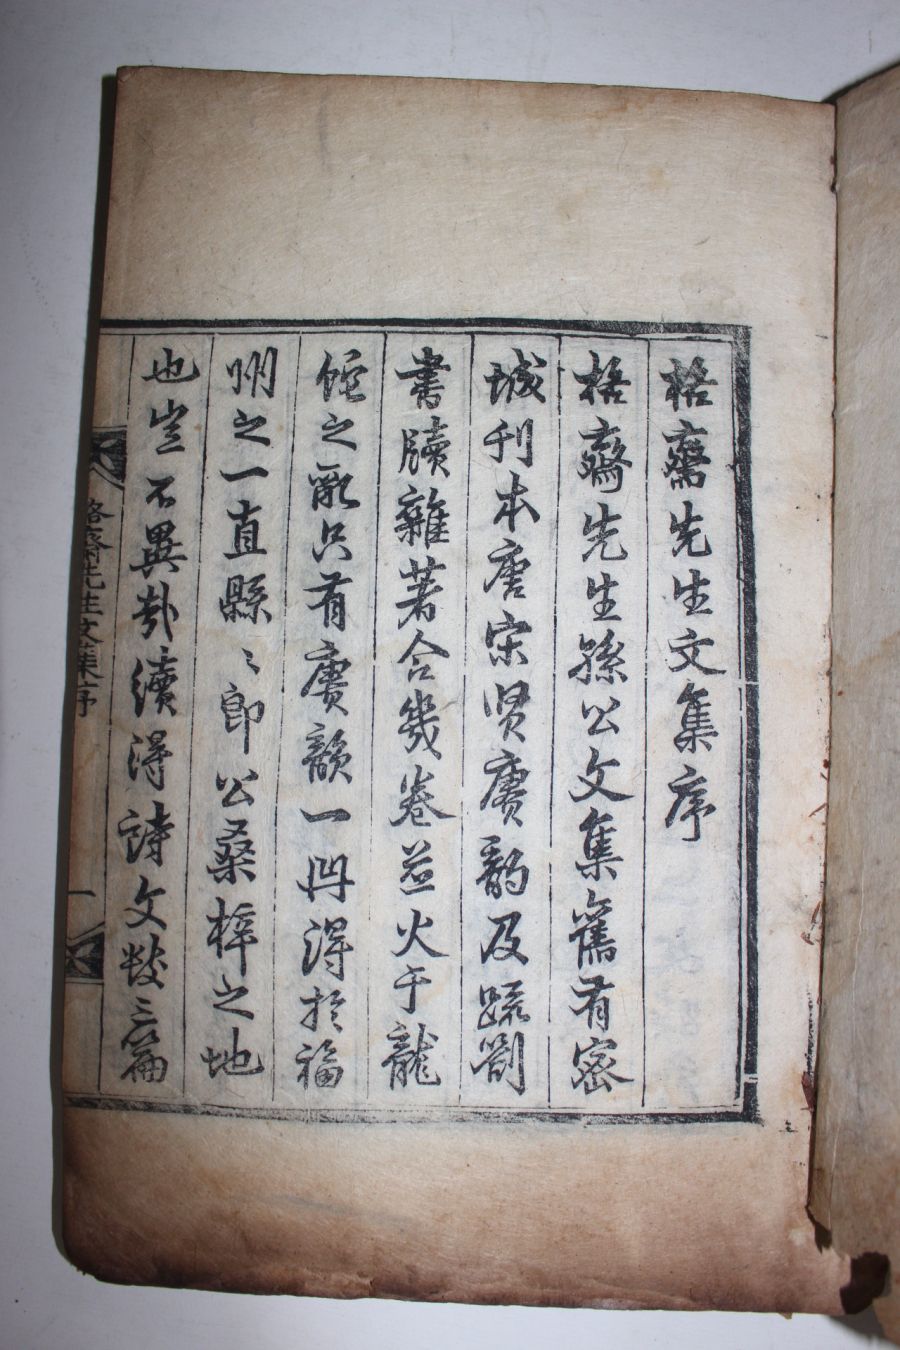 格齋先生文集序
格齋先生孫公文集舊有密
城刊本唐宋賢賡韵及疏劄
書牘雜著合幾卷並火于龍
蛇之亂只有賡韻一冊得於福
州之一直縣〻郎公桑梓之地
也豈不異哉續得詩文數三篇
格齋先生文集序 一